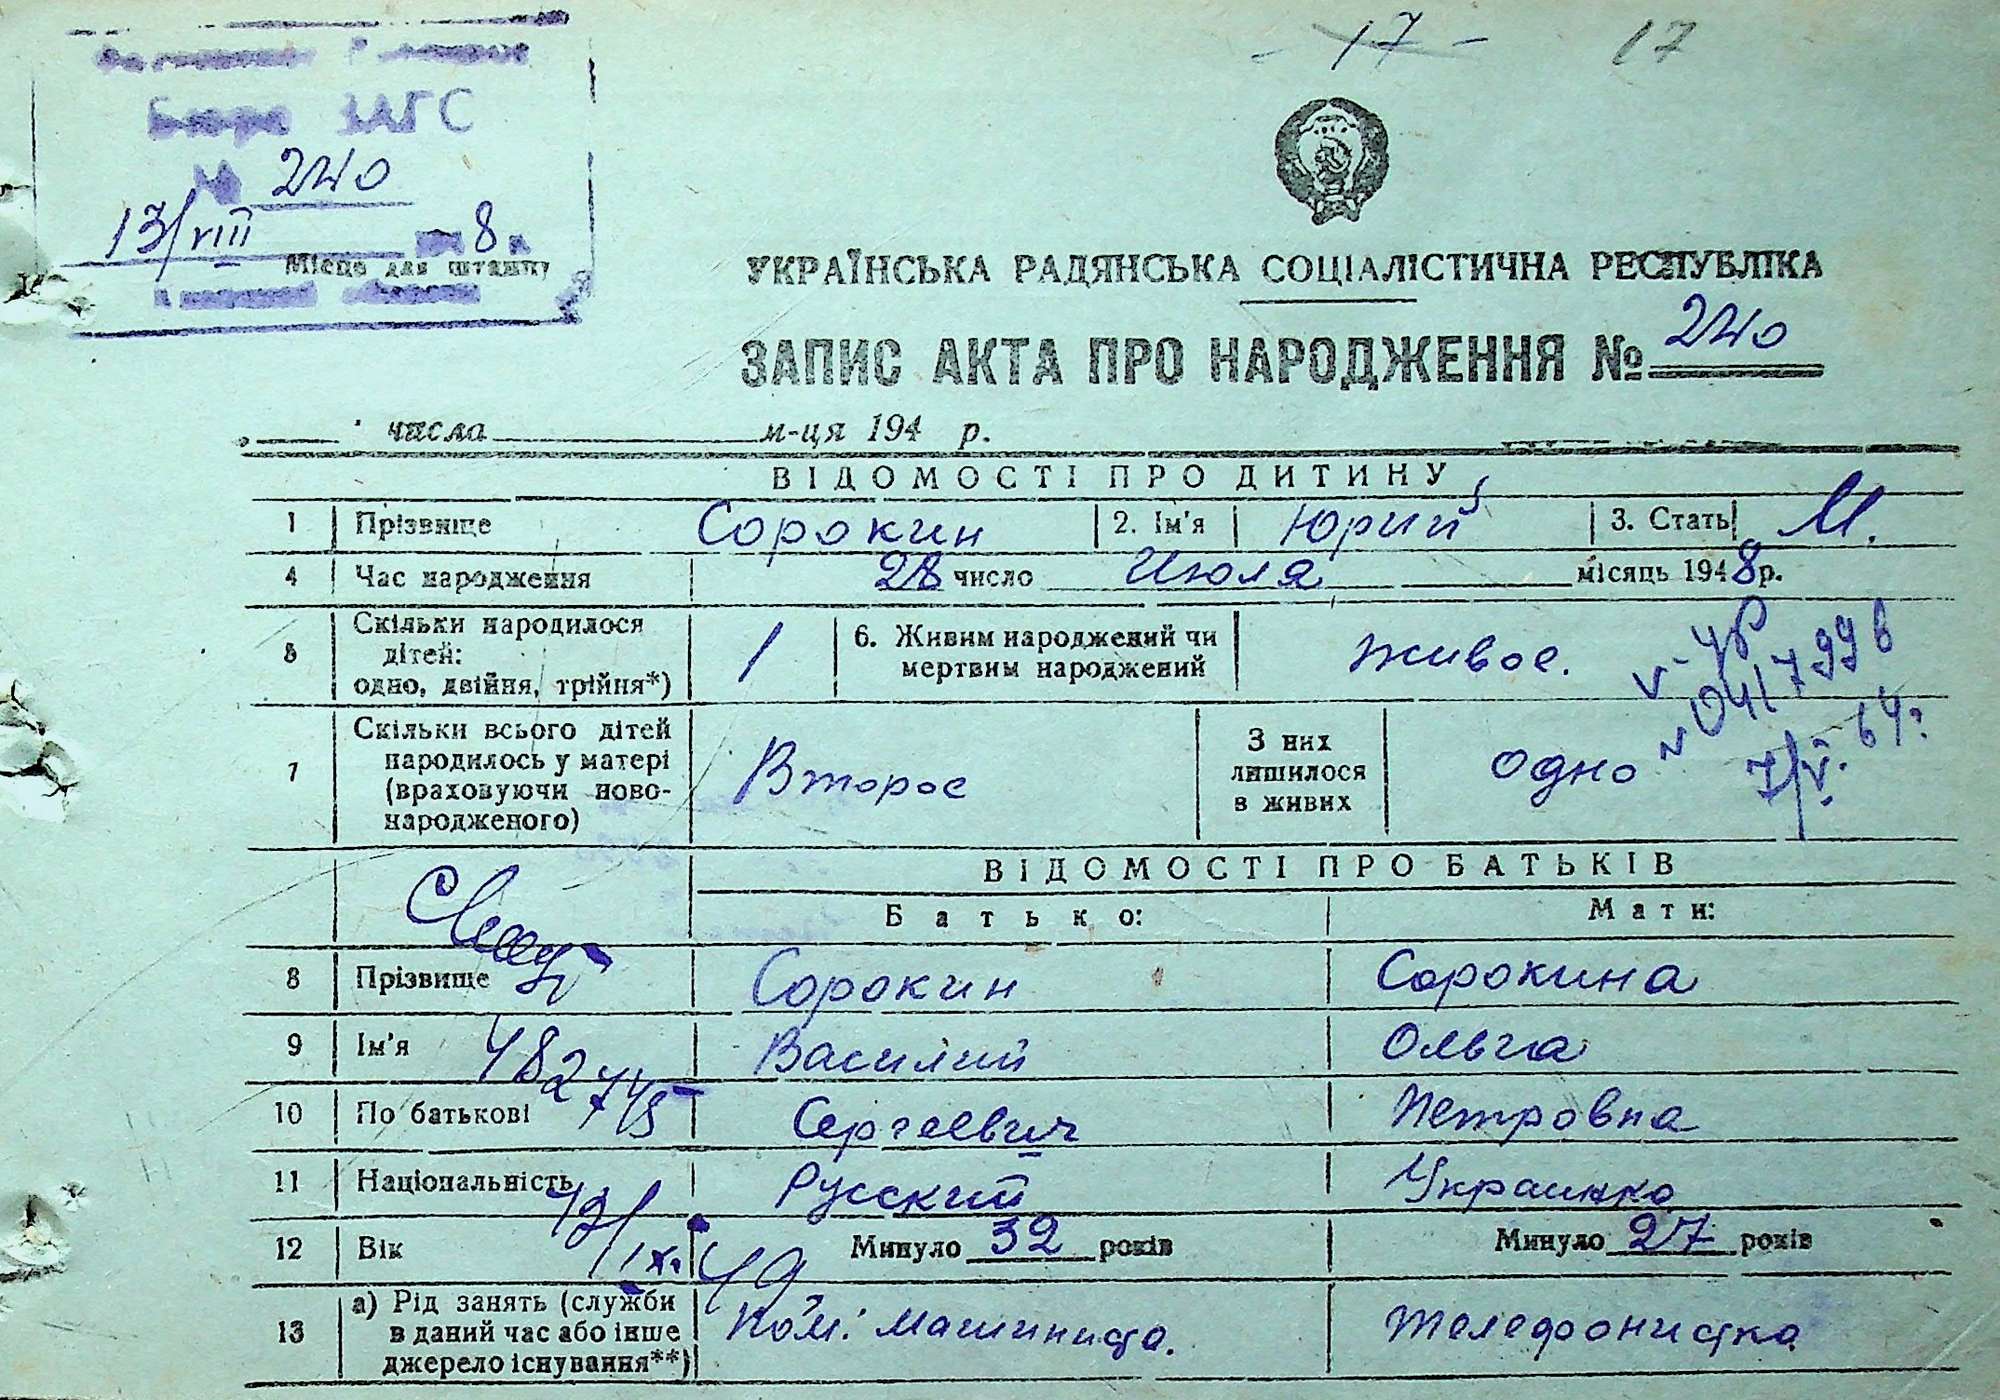 - 17 - 17
Бюро ЗАГС
№ 240
13/VIII 8 г.
Місце для штампу
УКРАЇНСЬКА РАДЯНСЬКА СОЦІАЛІСТИЧНА РЕСПУБЛІКА
ЗАПИС АКТА ПРО НАРОДЖЕННЯ № 240
„ числа м-ця 194 р.
ВІДОМОСТІ ПРО ДИТИНУ
1 Прізвище Сорокин 2. Ім'я Юрий 3. Стать М.
4 Час народження 28 число Июля місяць 1948 р.
5 Скільки народилося дітей: одно, двійня, трійня*) 1 6. Живим народжений чи мертвим народжений живое.
V-УР
№ 0417996
7/V. 64г.
7 Скільки всього дітей народилось у матері (враховуючи новонародженого) Второе З них лишилося в живих Одно
ВІДОМОСТІ ПРО БАТЬКІВ
Батько: Мати:
8 Прізвище Сорокин Сорокина
9 Ім'я Василий Ольга
10 По батькові Сергеевич Петровна
11 Національність Русский Украинка
12 Вік Минуло 32 років Минуло 27 років
13 а) Рід занять (служби в даний час або інше джерело існування**) Пом. машиниста. Телефонистка